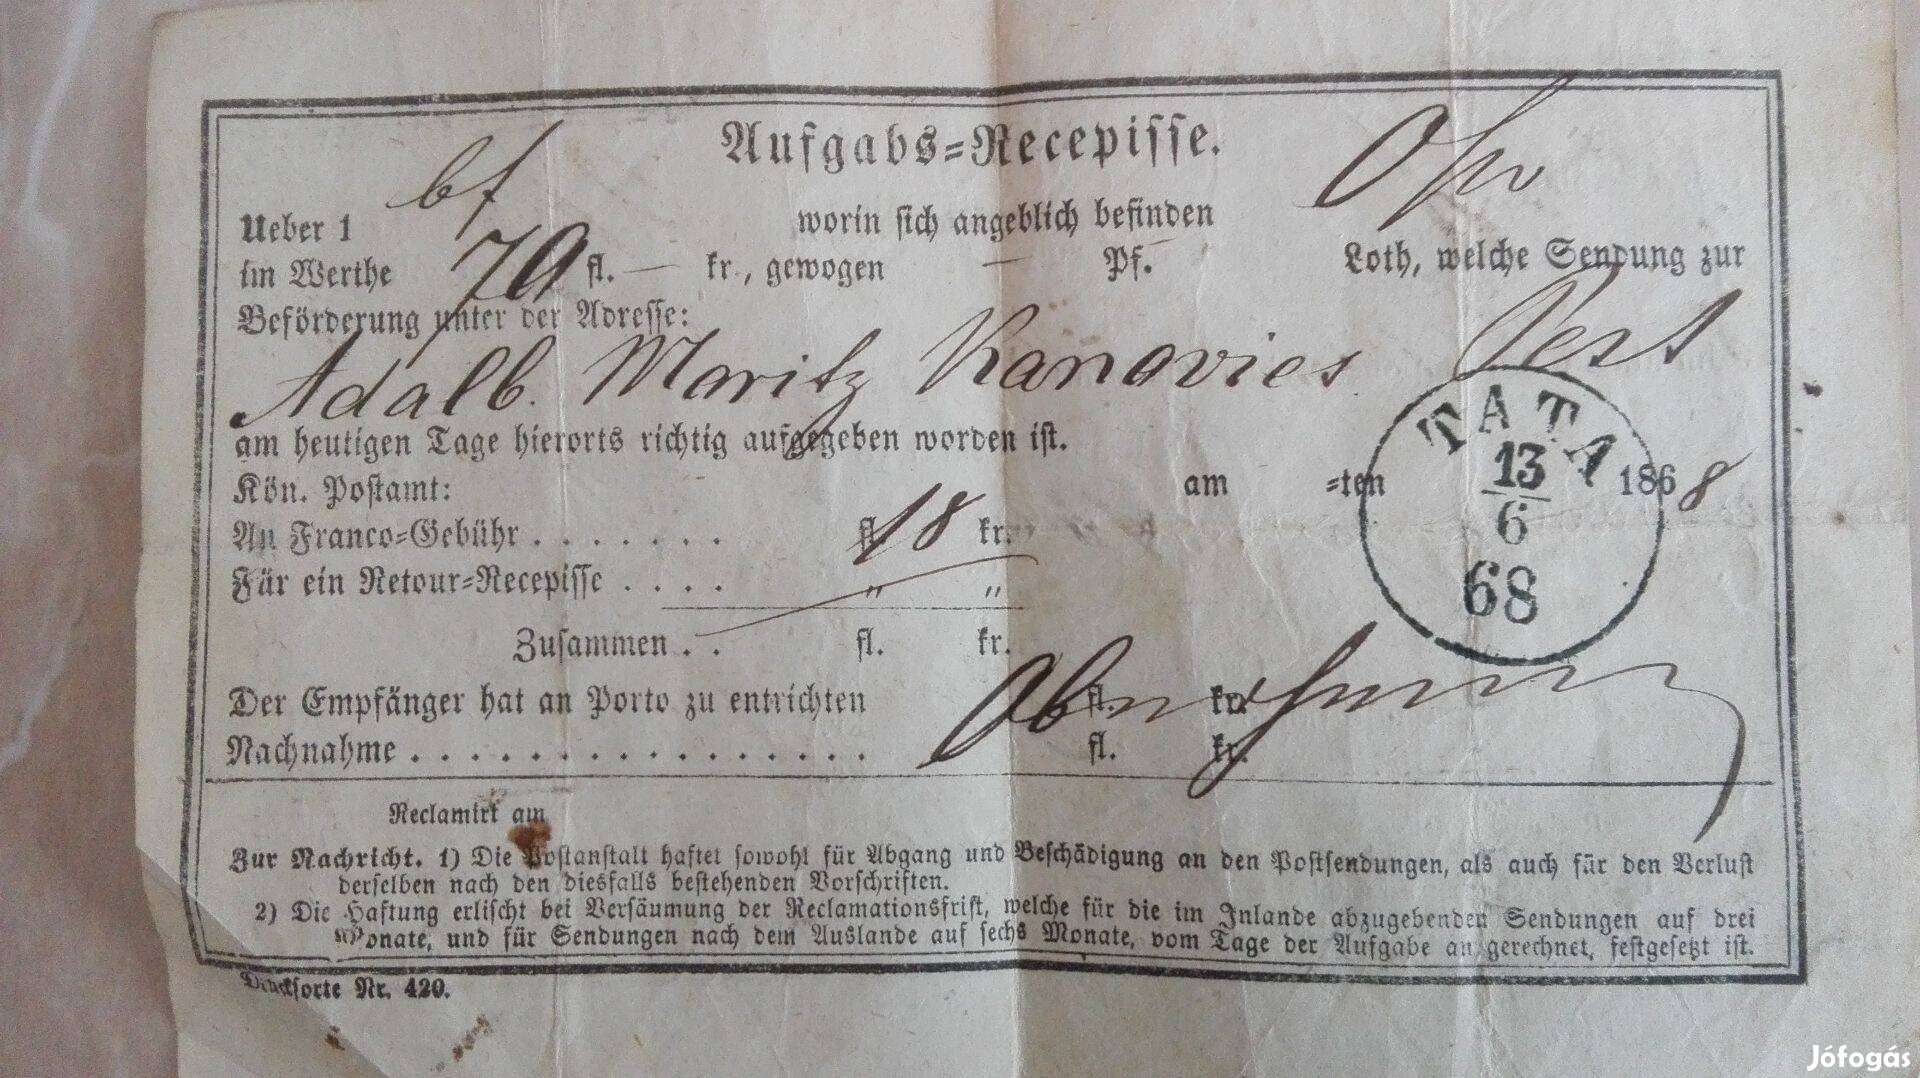 Aufgabs=Recepisse.
Ueber 1 bf worin sich angeblich befinden
im Werthe 70 fl. — kr., gewogen — Pf. Loth, welche Sendung zur
Beförderung unter der Adresse:
Adalb. Moritz Kanovics Pest
am heutigen Tage hierorts richtig aufgegeben worden ist.
TATA
13
6
68
Kön. Postamt: am =ten 1868
An Franco=Gebühr . . . . . . . fl. 18 kr.
Für ein Retour=Recepisse . . . . „ „
Zusammen . . fl. kr.
Der Empfänger hat an Porto zu entrichten fl. kr.
Nachnahme . . . . . . . . . . . . . . . . fl. kr.
Reclamirt am
Zur Nachricht. 1) Die Postanstalt haftet sowohl für Abgang und Beschädigung an den Postsendungen, als auch für den Verlust
derselben nach den diesfalls bestehenden Vorschriften.
2) Die Haftung erlischt bei Versäumung der Reclamationsfrist, welche für die im Inlande abzugebenden Sendungen auf drei
Monate, und für Sendungen nach dem Auslande auf sechs Monate, vom Tage der Aufgabe an gerechnet, festgesetzt ist.
Drucksorte Nr. 420.
Jófogás